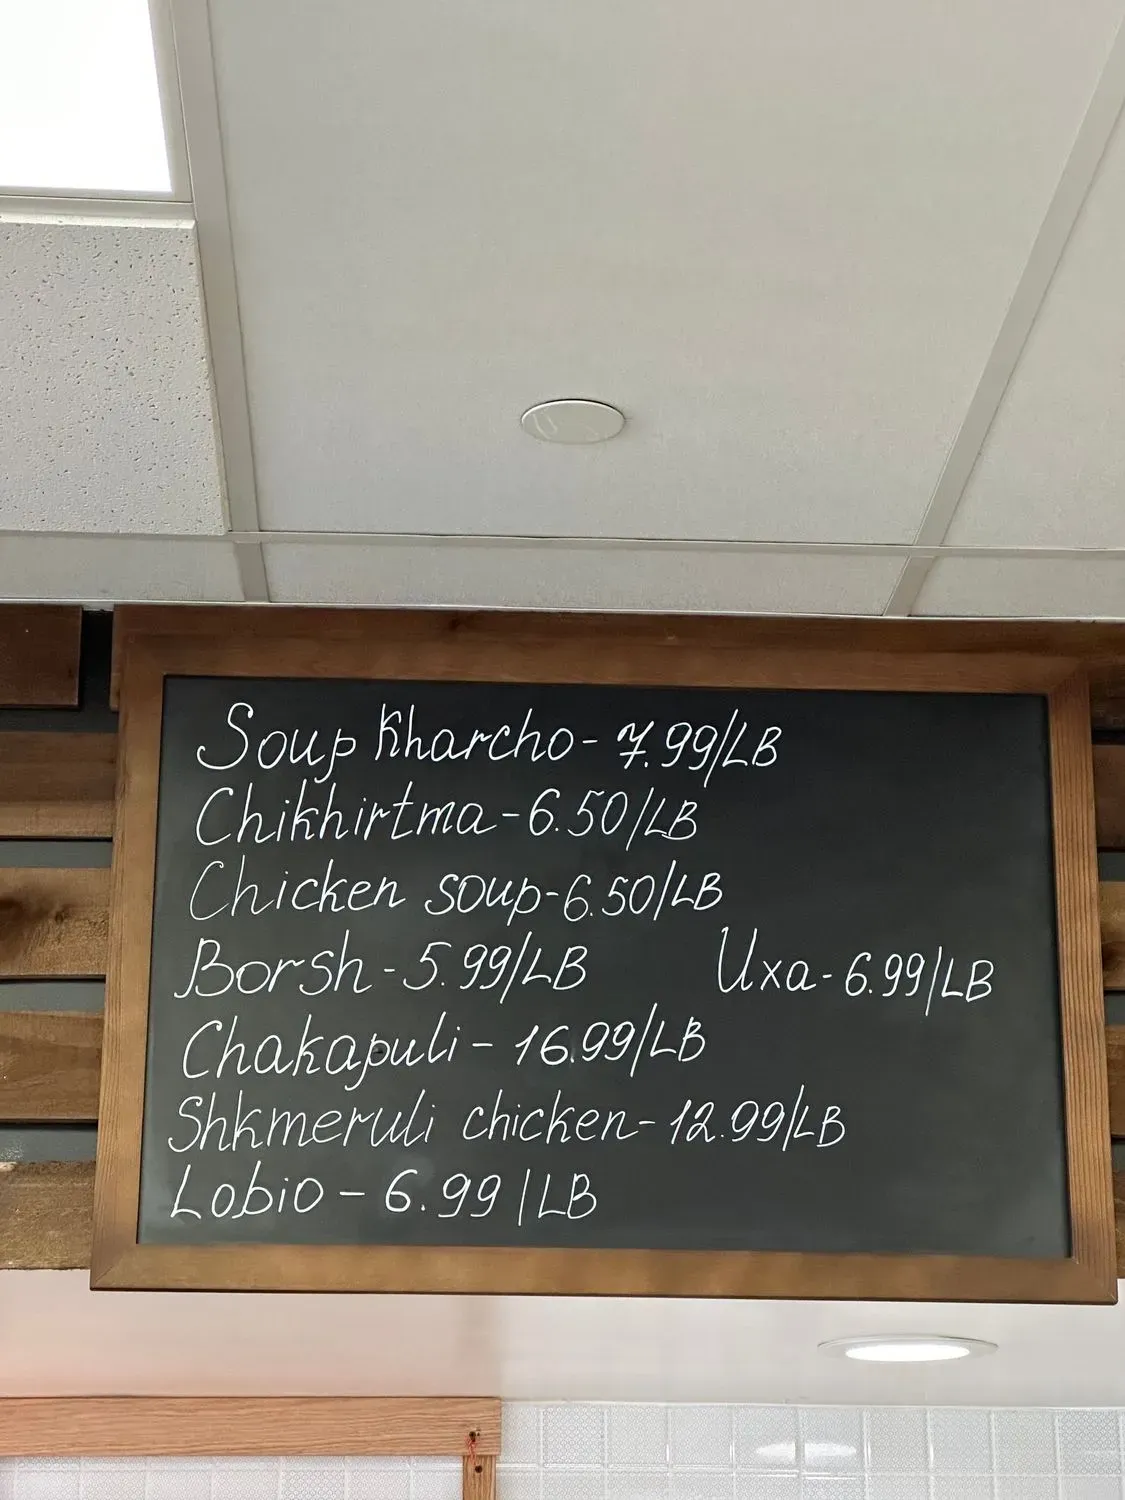 Soup Kharcho - 7.99/LB
Chikhirtma - 6.50/LB
Chicken soup - 6.50/LB
Borsh - 5.99/LB
Uxa - 6.99/LB
Chakapuli - 16.99/LB
Shkmeruli chicken - 12.99/LB
Lobio - 6.99/LB